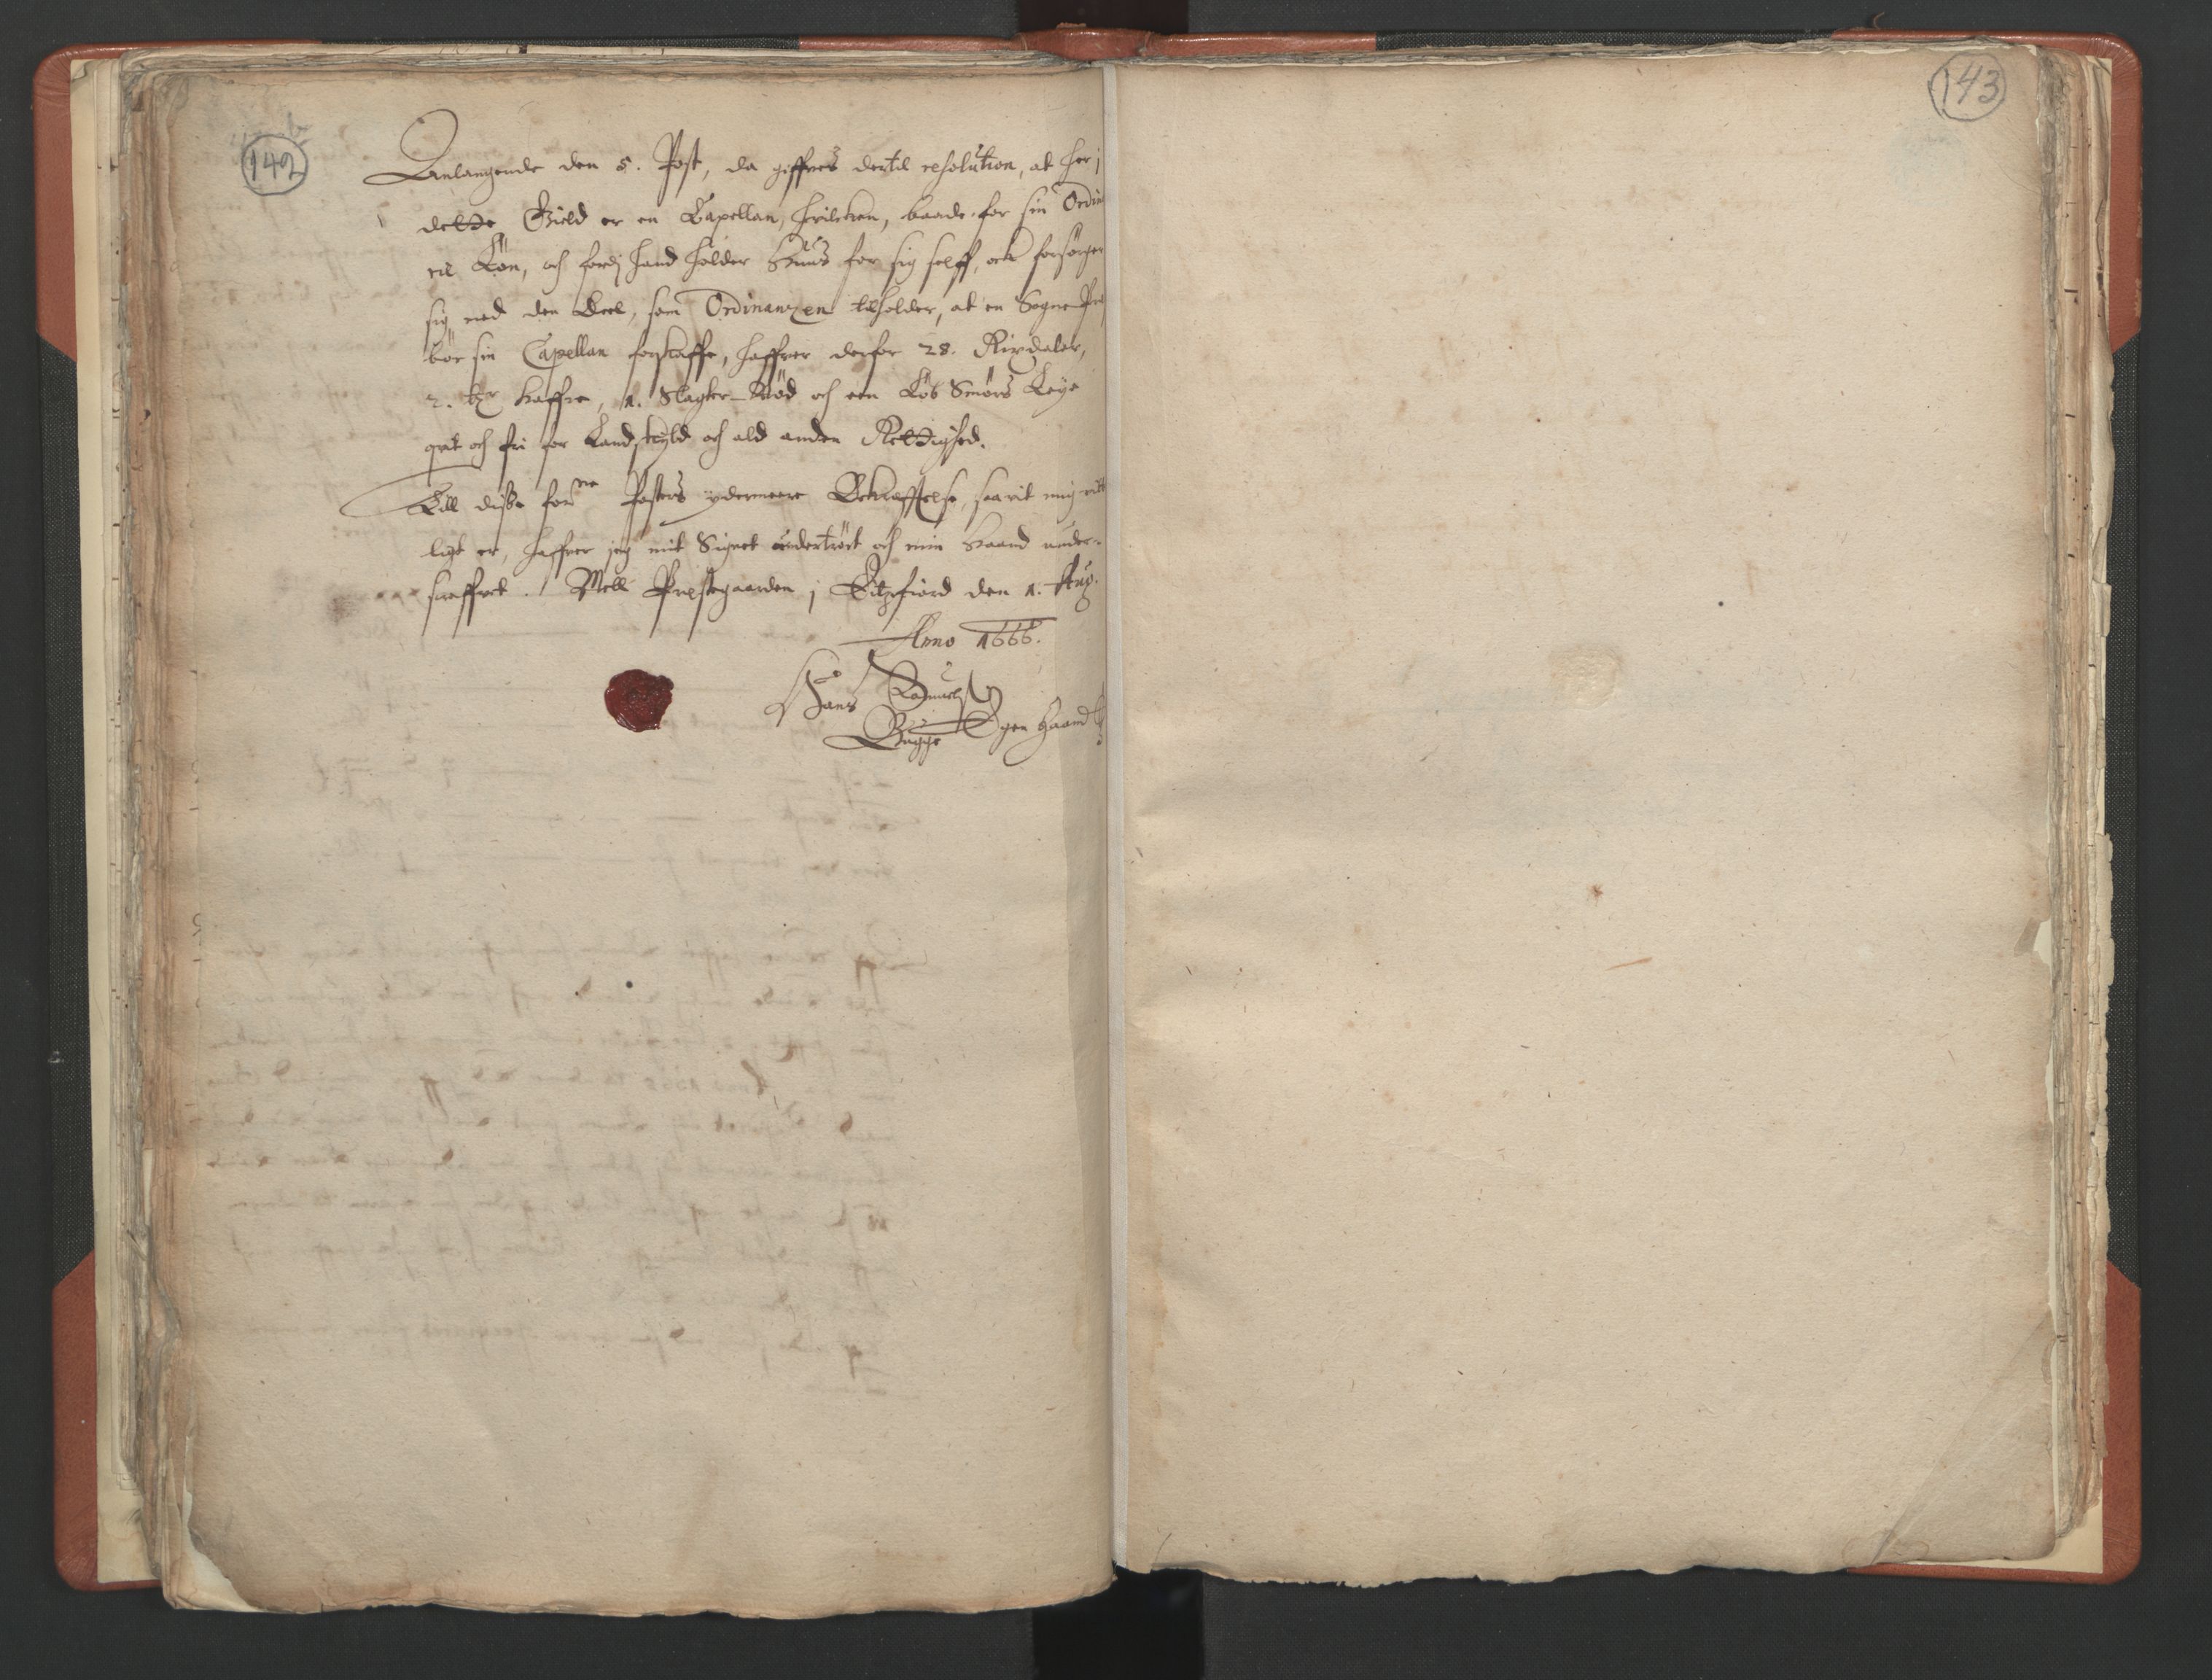 142
143
Anlangende den 5. Post, da giffves dertil resolution, at her j
dette Gield er en Capellan, hvilcken, baade for sin Ordin
rie Løn, och fordj hand holder Huus for sig self, och forsørger
sig med den Deel, som Ordinanzen tilholder, at en Sogne Pre
bør sin Capellan forskaffe, haffver derfor 28. Rixdaler,
2. tdr Haffre, 1. Slagter-Nød och een Løb Smørs Leye
qvit och fri for Landskyld och ald anden Rettighed.
Till disse forne Posters ydermeere Bekrefftelse, saavit mig vitt
ligt er, haffver jeg mit Signet undertrøct och min Haand under-
screffvet. Mell Prestegaarden j Qvitzfiord den 1. Aug.
Anno 1666.
Hans
Bugge Egen Haand